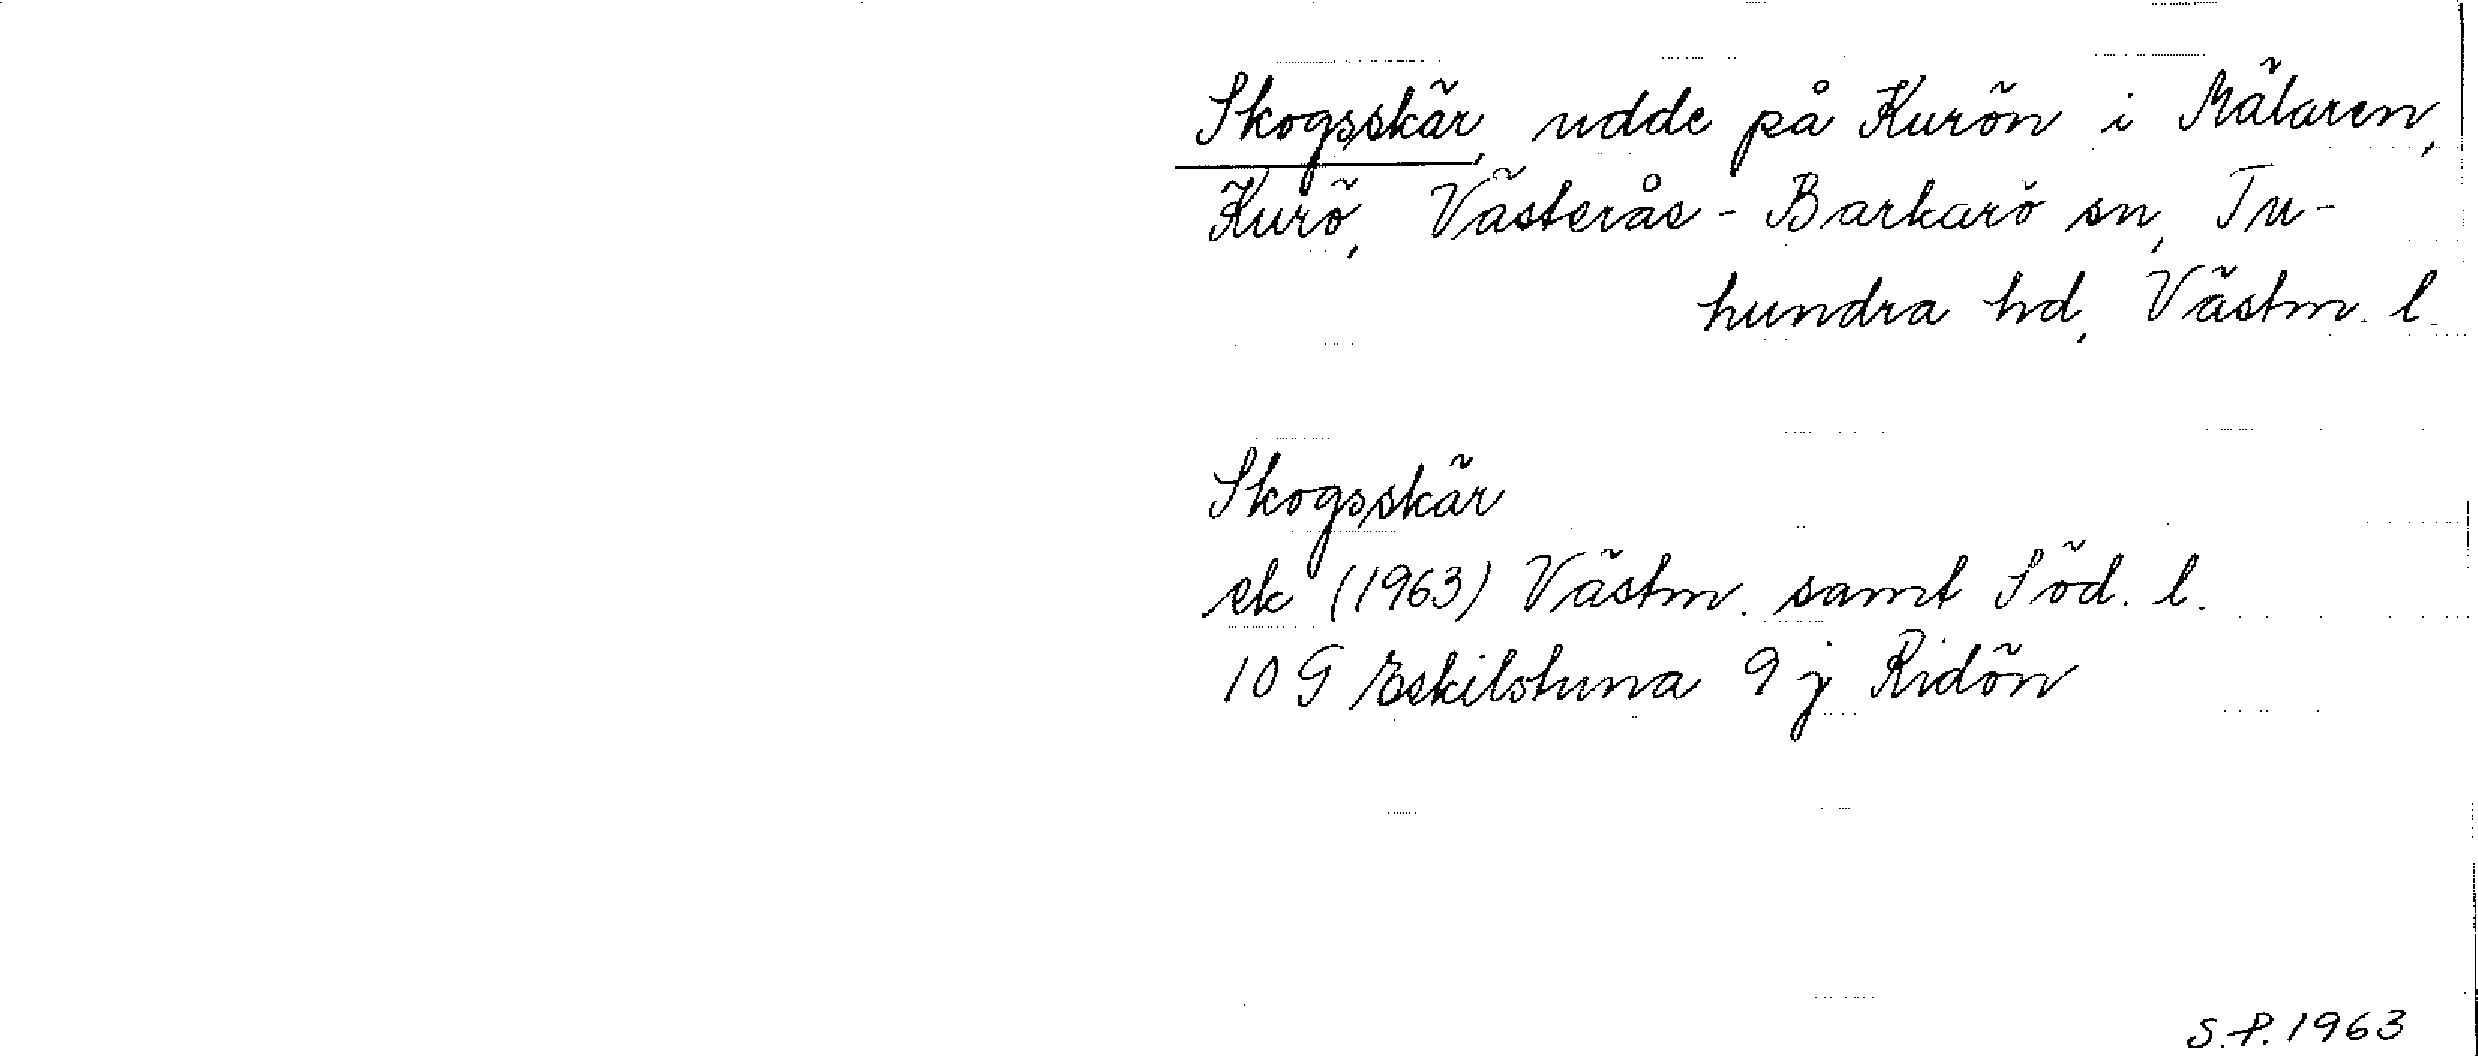 Skogsskär, udde på Kurön i Mälaren,
Kurö, Västerås-Barkarö sn, Tu-
hundra hd, Västm. l.
Skogsskär
ek (1963) Västm. samt Söd. l.
10 G Eskilstuna 9 j Ridön
S.P. 1963